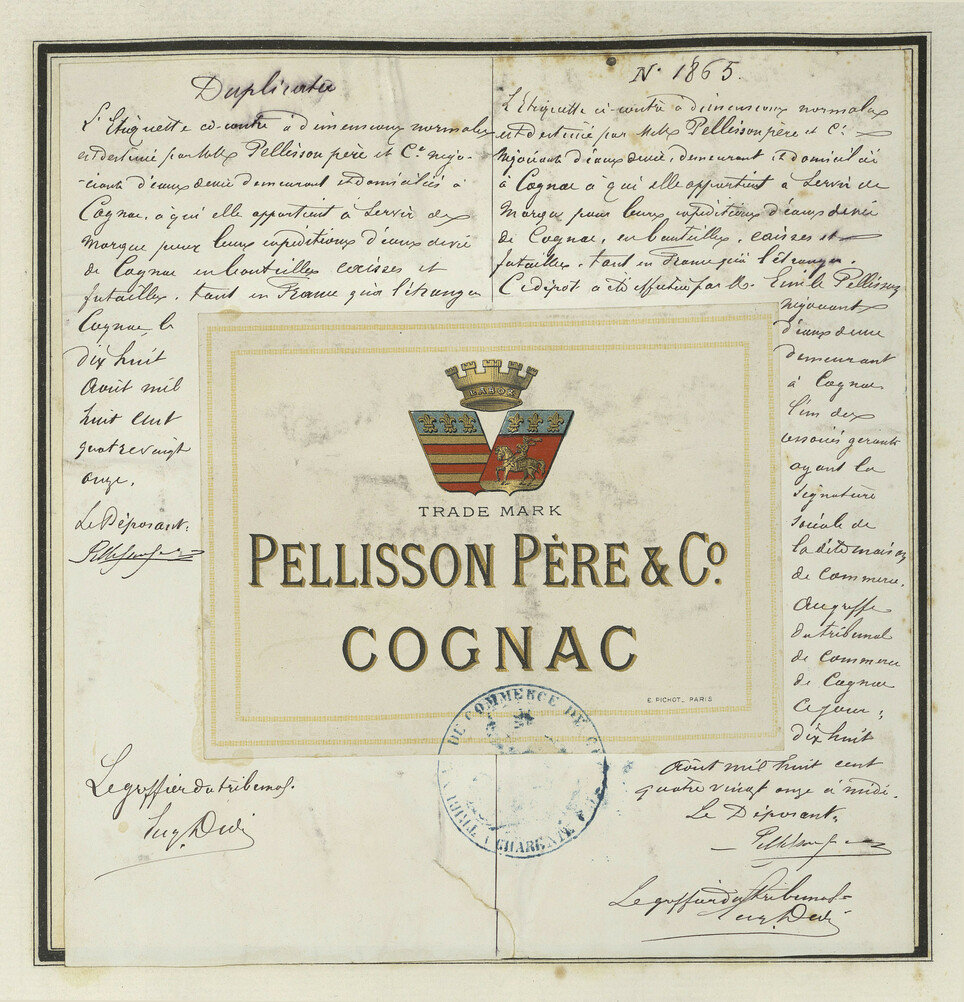 Duplicata
L'Etiquette ci-contre à dimensions normales
est destinée par MM Pellisson père et Cie négo-
-ciants d'eaux de vie demeurant et domiciliés à
Cognac, à qui elle appartient à servir de
marque pour leurs expéditions d'eaux de vie
de Cognac en bouteilles caisses et
futailles, tant en France qu'à l'étranger
Cognac, le
dix huit
Août mil
huit cent
quatre vingt
onze.
Le Déposant:
Le greffier du tribunal.
N° 1865.
L'Etiquette ci-contre à dimensions normales
est destinée par MM Pellisson père et Cie
négociants d'eaux de vie, demeurant et domiciliés
à Cognac à qui elle appartient à servir de
marque pour leurs expéditions d'eaux de vie
de Cognac, en bouteilles, caisses et
futailles, tant en France qu'à l'étranger.
Ce dépôt a été effectué par M. Emile Pellisson
négociant
d'eaux de vie
demeurant
à Cognac
l'un des
associés gérants
ayant la
signature
sociale de
la dite maison
de commerce.
Au greffe
du tribunal
de commerce
de Cognac
ce jour,
dix huit
Août mil huit cent
quatre vingt onze à midi.
Le Déposant,
Le greffier du tribunal
LABOR
TRADE MARK
PELLISSON PÈRE & Cº.
COGNAC
E. PICHOT_ PARIS
DE COMMERCE DE
CHARENTE